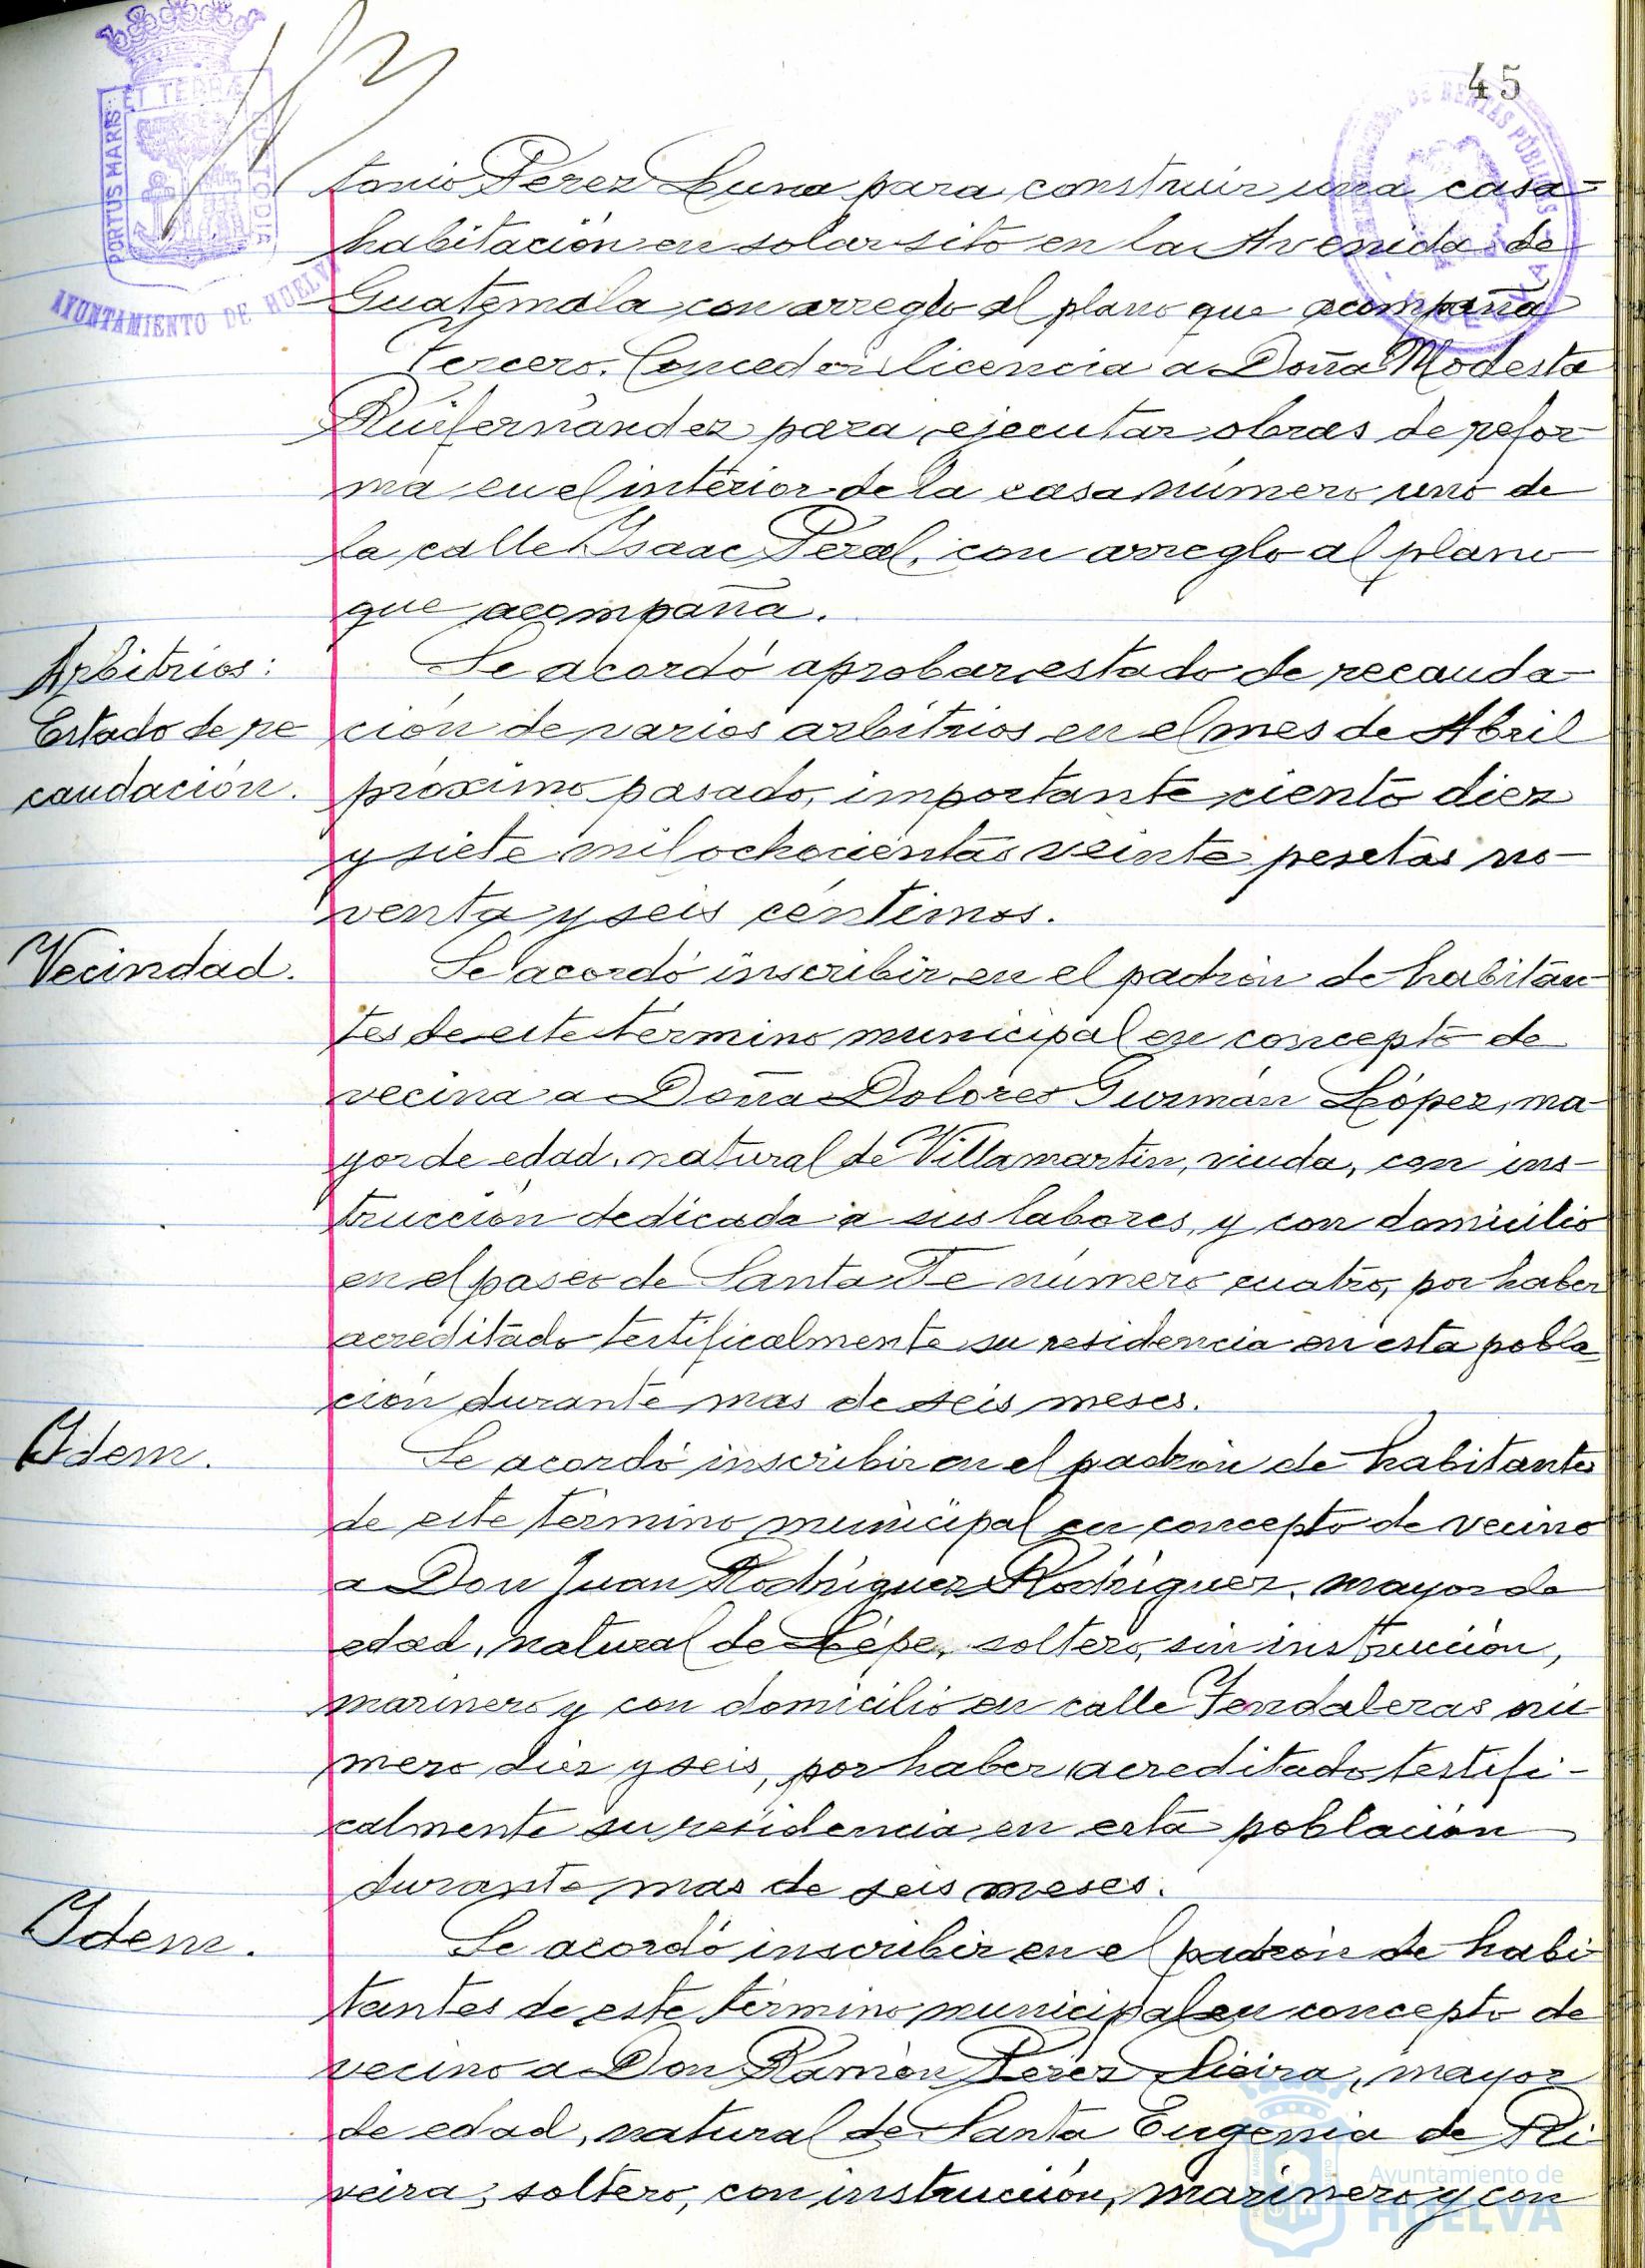 45
PORTUS MARIS ET TERRÆ CUSTODIA
AYUNTAMIENTO DE HUELVA
tonio Pérez Luna para construir una casa-
habitación en solar sito en la Avenida de
Guatemala con arreglo al plano que acompaña
Tercero. Conceder licencia a Doña Modesta
Ruifernández para ejecutar obras de refor-
ma en el interior de la casa número uno de
la calle Isaac Peral, con arreglo al plano
que acompaña.
Arbitrios:
Estado de re
caudación.
Se acordó aprobar estado de recauda-
ción de varios arbitrios en el mes de Abril
próximo pasado, importante ciento diez
y siete mil ochocientas veinte pesetas no-
venta y seis céntimos.
Vecindad.
Se acordó inscribir en el padrón de habitan-
tes de este término municipal en concepto de
vecina a Doña Dolores Guzmán López, ma-
yor de edad, natural de Villamartín, viuda, con ins-
trucción dedicada a sus labores, y con domicilio
en el paseo de Santa Fe número cuatro, por haber
acreditado testificalmente su residencia en esta pobla
ción durante mas de seis meses.
Idem.
Se acordó inscribir en el padrón de habitantes
de este término municipal en concepto de vecino
a Don Juan Rodríguez Rodríguez, mayor de
edad, natural de Lepe, soltero, sin instrucción,
marinero y con domicilio en calle Tendaleras nú
mero diez y seis, por haber acreditado testifi-
calmente su residencia en esta población
durante mas de seis meses.
Idem.
Se acordó inscribir en el padrón de habi-
tantes de este término municipal en concepto de
vecino a Don Ramón Pérez mayor
de edad, natural de Santa Eugenia de Ri
veira, soltero, con instrucción, marinero y con
Ayuntamiento de
HUELVA